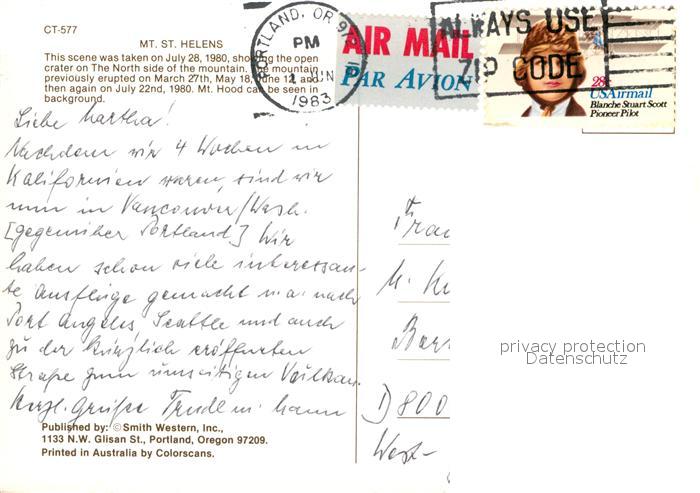 CT-577
MT. ST. HELENS
This scene was taken on July 28, 1980, showing the open
crater on The North side of the mountain. The mountain
previously erupted on March 27th, May 18, June 12, and
then again on July 22nd, 1980. Mt. Hood can be seen in
background.
PORTLAND, OR 97
PM
12 JUN
1983
AIR MAIL
PAR AVION
ALWAYS USE
ZIP CODE
28c
USAirmail
Blanche Stuart Scott
Pioneer Pilot
Liebe Martha!
Nachdem wir 4 Wochen in
Kalifornien waren, sind wir
nun in Vancouver/Wash.
[gegenüber Portland.] Wir
haben schon viele interessan-
te Ausflüge gemacht u.a. nach
Port Angeles, Seattle und auch
zu der kürzlich eröffneten
Straße zum umseitigen Vulkan.
Herzl. Grüße Trudl u. Hann
Frau
M. K
Bar
D 800
West-
privacy protection
Datenschutz
Published by: ©Smith Western, Inc.,
1133 N.W. Glisan St., Portland, Oregon 97209.
Printed in Australia by Colorscans.